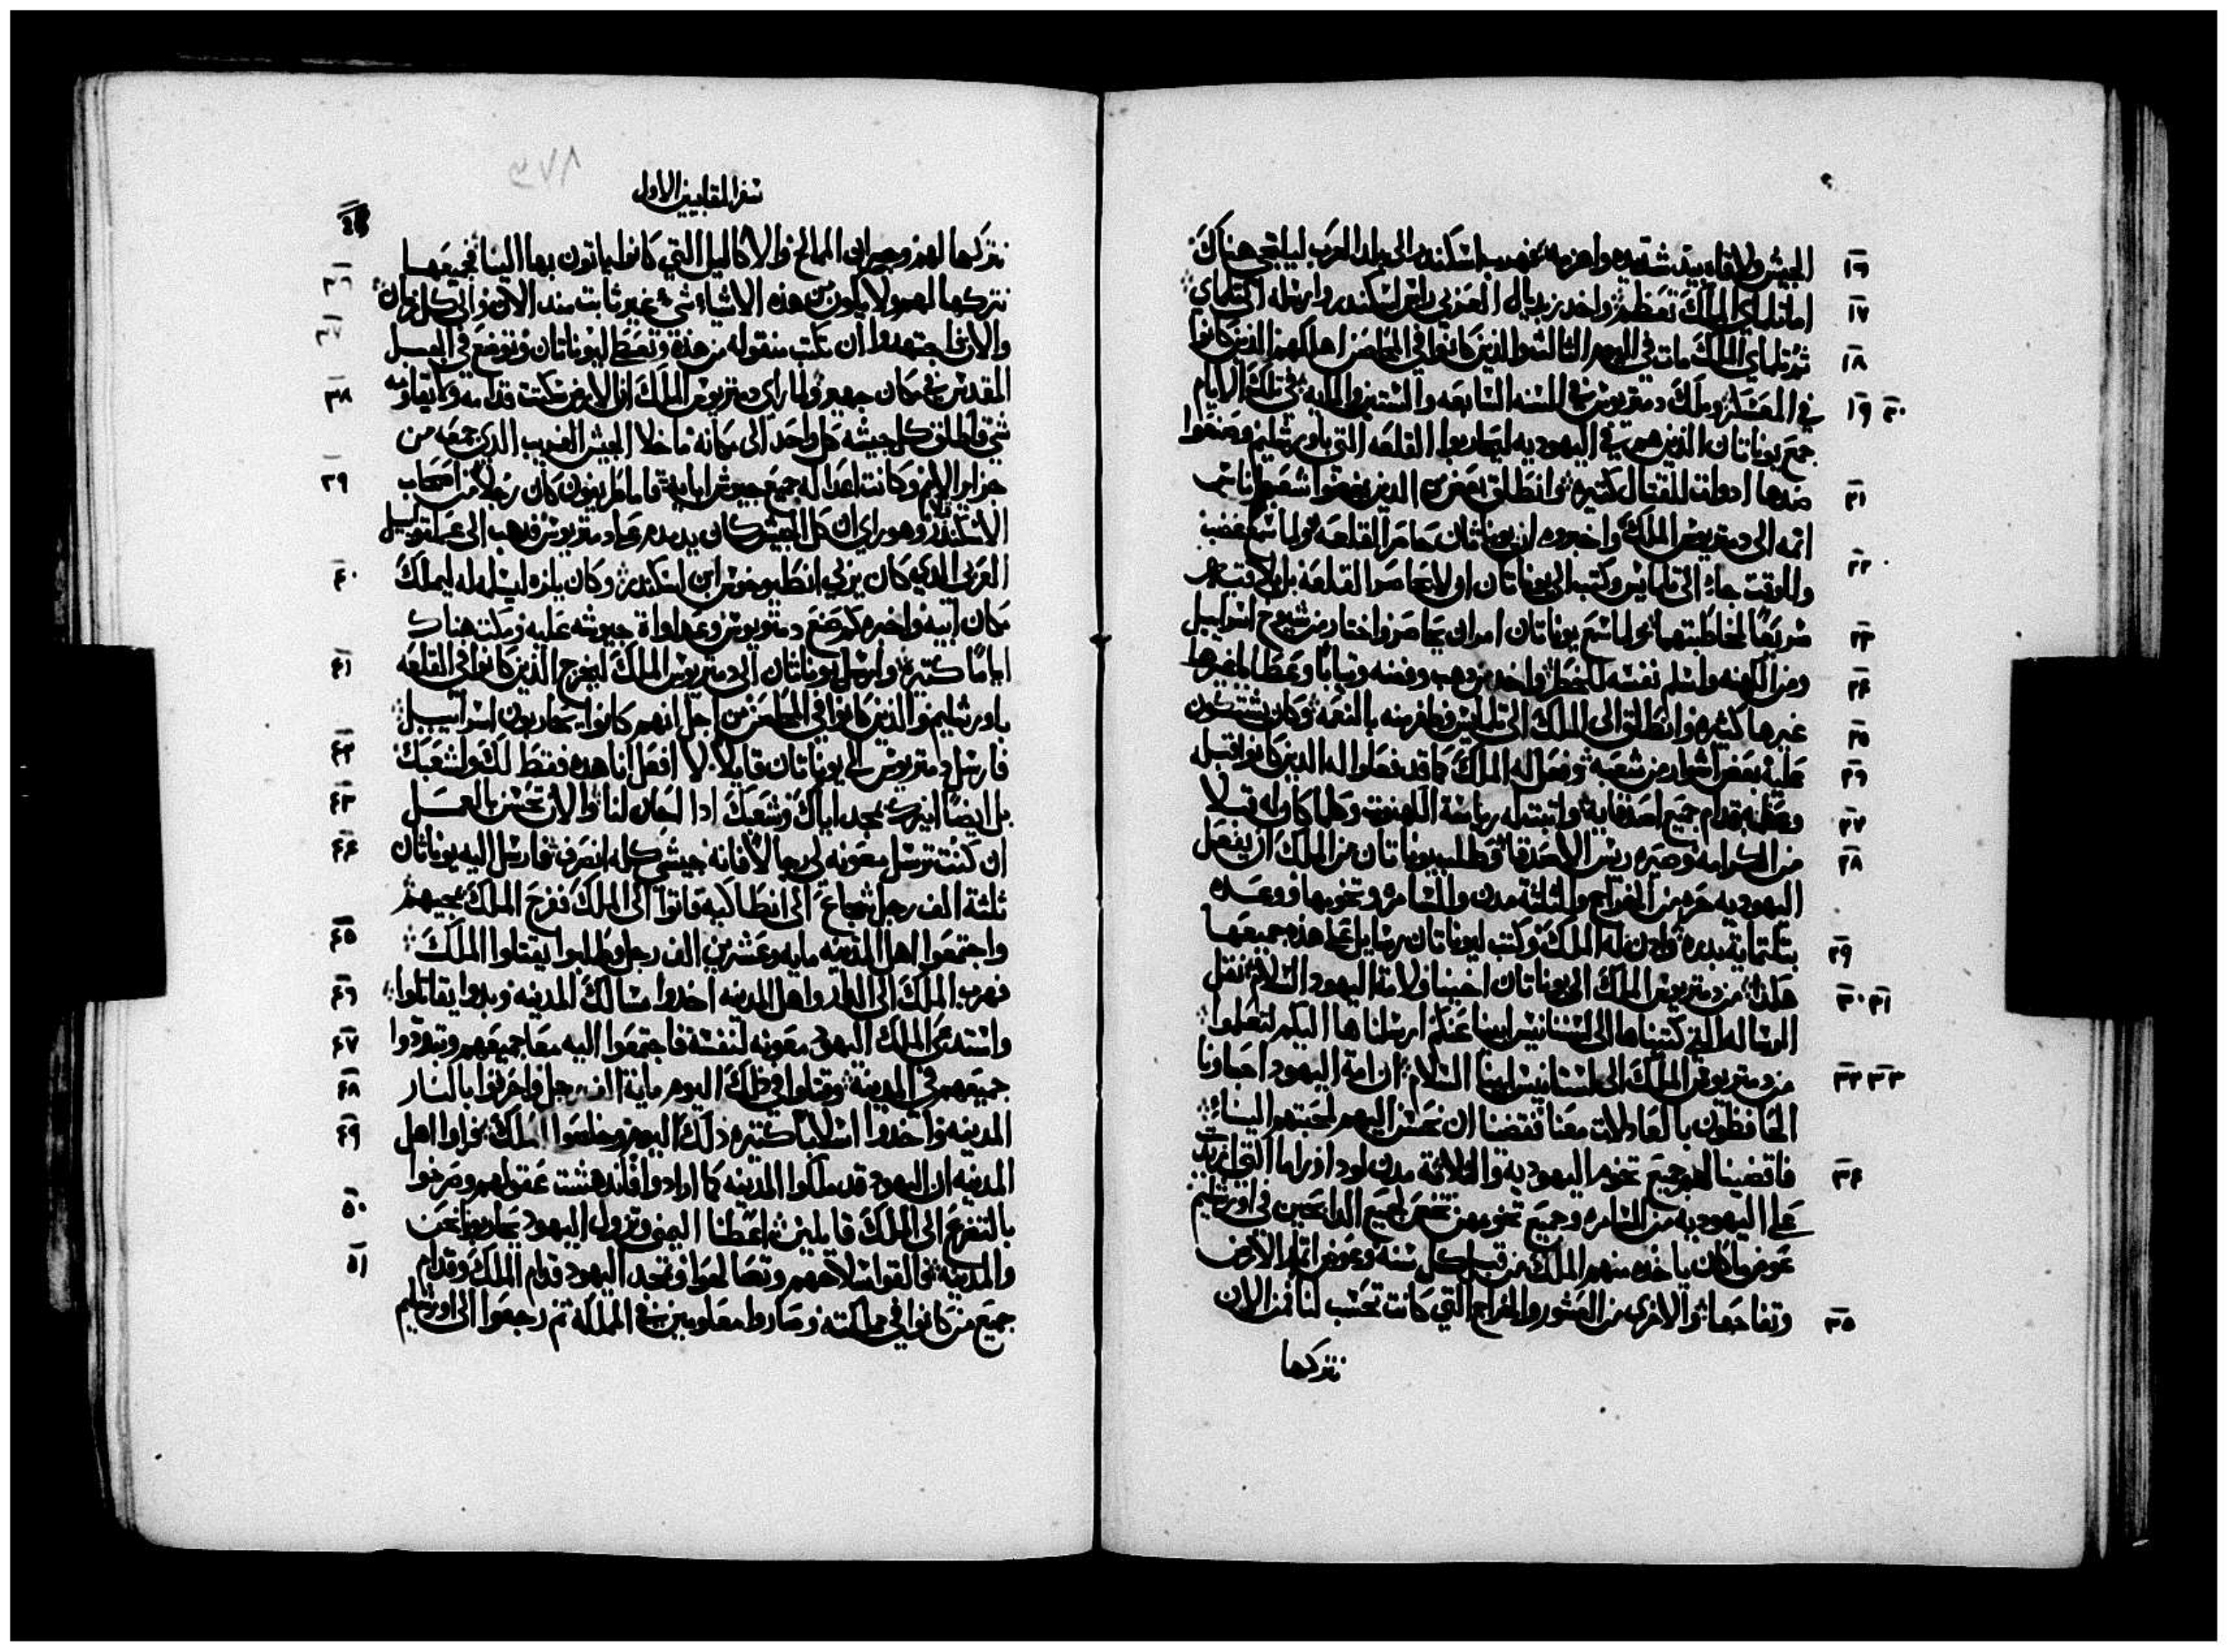 الجيش ولاقاه بيد شديده واهزمه فهرب اسكندر الى بلد العرب ليلتجي هناك
١٦
اما تلماي الملك تعظم واخذ زبديال العربي راس اسكندر وارسله الى تلماي
١٧
ثم تلماي الملك مات في اليوم الثالث والذين كانوا في المحاصن اهلكهم الذين كانوا
١٨
في المعسكر وملك دمتريوس في السنه السابعه والستين والمايه في تلك الايام
١٩ ٢٠
جمع يوناتان الذين هم في اليهوديه ليحاربوا القلعه التي باورشليم وصنعوا
ضدها ادوات للقتال كتيره وانطلق بعض الذين يبغضوا شعبهم ناس
٢١
اتمه الى دمتريوس الملك واخبروه ان يوناتان حاصر القلعه فلما سمع غضب
وللوقت جاء الى تلمايس وكتب الى يوناتان ان لا يحاصر القلعه بل
٢٢
سريعا لمخاطبتهما ولما سمع يوناتان امر ان يحاصر واختار من شيوخ اسراييل
٢٣
ومن الكهنه واسلم نفسه للخطر واخد ذهب وفضه وتيابا وعطايا غيرها
٢٤
غيرها كثيره وانطلق الى الملك الى تلمايس وظفر منه بالنعمه وكان يشتكون
٢٥
عليه بعض اشرار من شعبه وفعل له الملك كما قد فعلوا له الدين كانوا قبل
٢٦
وعظمه قدام جميع اصدقايه واتبت له رياسة الكهنوت وكلما كان له قبلا
٢٧
من الكرامه وصيره ريس الاصدقا فطلب يوناتان من الملك ان يفعل
٢٨
اليهوديه حره من الخراج والثلثة مدن والسامره وتخومها ووعده
بتلتماية بدره واذن له الملك وكتب ليوناتان رسايل على هذه جميعها
٢٩
هكذا من دمتريوس الملك الى يوناتان اخينا ولامة اليهود السلام نقل
٣٠ ٣١
الرساله التي كتبناها الى لستانيس ابينا عنكم ارسلناها اليكم لتعلموا
من دمتريوس الملك الى لستانيس ابينا السلام ان امة اليهود احباونا
٣٢ ٣٣
الحافظون بالعادلات معنا قضينا ان نحسن اليهم لمحبتهم الينا
فاقضينا لهم جميع تخوم اليهودية والثلاثة مدن لود ارزاما التي ازيدت
٣٤
على اليهوديه من السامره وجميع تخومهن تخص لجميع الدابحين في اورشليم
عوض ما كان ياخده منهم الملك من قبل كل سنه وعوض اتمار الارض
وتفاحها والاخرى من العشور والخراج التي كانت تحسب لنا فمن الان
٣٥
نتركها
سفر المقابيين الاول
نتركها لهم وجيران الممالح والاكاليل التي كانوا ياتون بها الينا فجميعها
نتركها لهم ولا يكون من هذه الاشياء شي غير ثابت مند الان والى كل زمان
٣٦
والان فاجتهدوا ان تكتب منقوله من هذه وتعطى ليوناتان وتوضع في الجبل
٣٧
المقدس في مكان جهير ولما راى دمتريوس الملك ان الارض سكتت قدامه ولا يقاومه
٣٨
شي فاطلق كل جيشه كل واحد الى مكانه ما خلا الجيش الغريب الذي جمعه من
جزاير الامم وكانت اعدا له جميع جيوش ابايه فاما طريفون كان رجلا من اصحاب
٣٩
الاسكندر وهو راى ان كل الجيش كان يدمدم على دمتريوس فدهب الى عملتوييل
العربي الذي كان يربي انطيوخوس ابن اسكندر وكان يلزه ليسلمه له ليملك
٤٠
مكان ابيه واخبره كم صنع دمتريوس وعداواة جيوشه عليه ومكت هناك
اياما كتيره وارسل يوناتان الى دمتريوس الملك ليخرج الذين كانوا في القلعه
٤١
باورشليم والذين كانوا في المحاصن من اجل انهم كانوا يحاربون اسراييل
فارسل دمتريوس الى يوناتان قايلا لا افعل انا هذه فقط لك ولشعبك
٤٢
بل ايضا ايرك بمجد اياك وشعبك ادا امكان لنا والان تحسن بالعمل
٤٣
ان كنت ترسل معونه لي رجالا فانه جيشي كله انصرف فارسل اليه يوناتان
٤٤
ثلثة الف رجل شجاع الى انطاكيه فاتوا الى الملك ففرح الملك بمجيهم
واجتمعوا اهل المدينه مايه وعشرين الف رجل وطلبوا يقتلوا الملك
٤٥
فهرب الملك الى الدار واهل المدينه اخدوا مسالك المدينه وبدوا يقاتلوا
٤٦
واستدعى الملك اليهود معونه لنفسه فاجتمعوا اليه معا جميعهم وتبددوا
٤٧
جميعهم في المدينة وقتلوا في ذلك اليوم ماية الف رجل واحرقوا بالنار
٤٨
المدينه واخدوا اسلابا كتيره ذلك اليوم وخلصوا الملك فراوا اهل
٤٩
المدينه ان اليهود قد ملكوا المدينه كما ارادوا فاندهشت عقولهم وصرخوا
بالتضرع الى الملك قايلين اعطنا اليمين وتزول اليهود يحاربونا نحن
٥٠
والمدينه فالقوا سلاحهم وتصالحوا ونمجد اليهود قدام الملك وقدام
٥١
جميع من كانوا في مملكته وصاروا معلومين في المملكه ثم رجعوا الى اورشليم